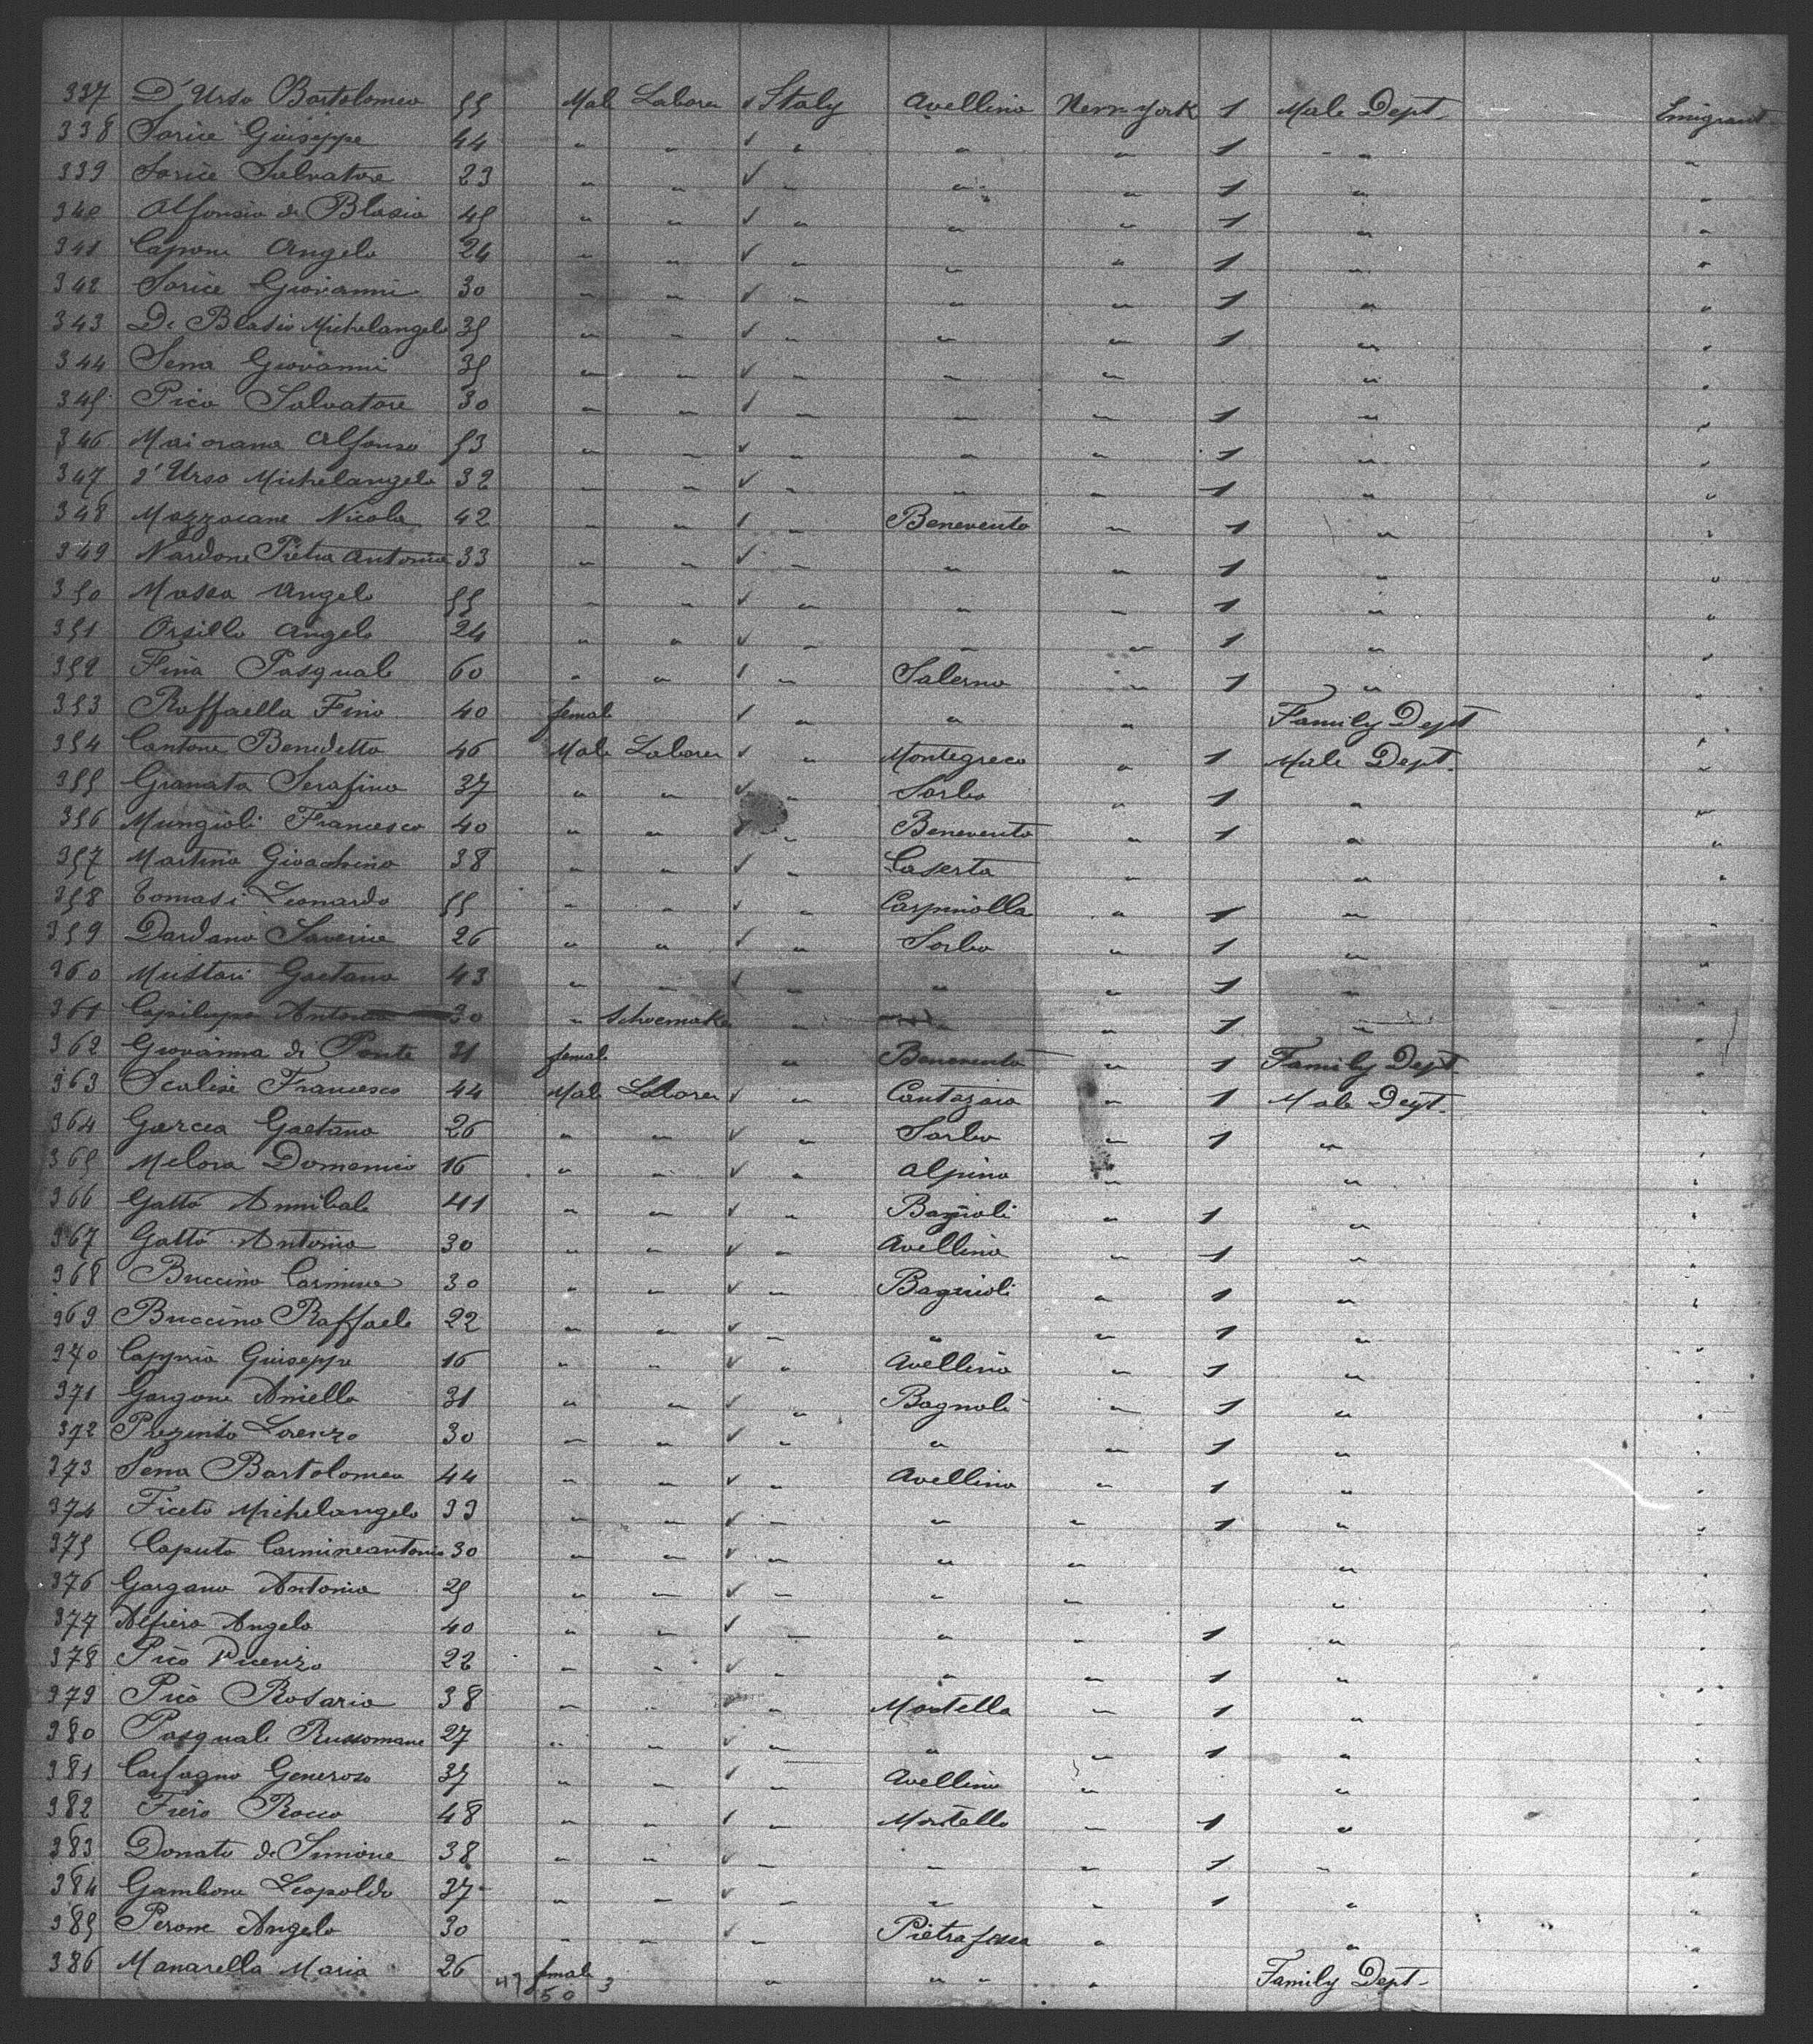 337 D'Urso Bartolomeo 55 Male Laborer ✓ Italy Avellino New York 1 Male Dept. Emigrant
338 Sorice Giuseppe 44 " " ✓ " " " 1 " "
339 Sorice Salvatore 23 " " ✓ " " " 1 " "
340 Alfonsio di Blasio 45 " " ✓ " " " 1 " "
341 Capone Angelo 24 " " ✓ " " " 1 " "
342 Sorice Giovanni 30 " " ✓ " " " 1 " "
343 De Blasio Michelangelo 35 " " ✓ " " " 1 " "
344 Sena Giovanni 35 " " ✓ " " " " "
345 Pico Salvatore 30 " " ✓ " " " 1 " "
346 Maiorana Alfonso 53 " " ✓ " " " 1 " "
347 d'Urso Michelangelo 32 " " ✓ " " " 1 " "
348 Mazzacane Nicola 42 " " ✓ " Benevento " 1 " "
349 Nardone Pietro Antonio 33 " " ✓ " " " 1 " "
350 Mosca Angelo 55 " " ✓ " " " 1 " "
351 Orsillo Angelo 24 " " ✓ " " " 1 " "
352 Fina Pasquale 60 " " ✓ " Salerno " 1 " "
353 Raffaella Fino 40 female ✓ " " " Family Dept "
354 Cantone Benedetto 46 Male Laborer ✓ " Montegreco " 1 Male Dept. "
355 Granata Serafino 37 " " ✓ " Sorbo " 1 " "
356 Mungioli Francesco 40 " " ✓ " Benevento " 1 " "
357 Martino Gioachino 38 " " ✓ " Caserta " " "
358 Tomasi Leonardo 55 " " ✓ " Carpinolla " 1 " "
359 Dardano Saverio 26 " " ✓ " Sorbo " 1 " "
360 Mustari Gaetano 43 " " ✓ " " " 1 " "
361 Antonio 30 " Schoemaker " " " 1 " "
362 Giovanna di Ponte 31 female " Benevento " 1 Family Dept "
363 Scalise Francesco 44 Male Laborer ✓ " Cantazaro " 1 Male Dept. "
364 Garcea Gaetano 26 " " ✓ " Sorbo " 1 " "
365 Melora Domenico 16 " " ✓ " Alpino " " "
366 Gatto Annibale 41 " " ✓ " Bagnoli " 1 " "
367 Gatto Antonio 30 " " ✓ " Avellino " 1 " "
368 Buccino Carmine 30 " " ✓ " Bagnioli " 1 " "
369 Buccino Raffaele 22 " " ✓ " " " 1 " "
370 Giuseppe 16 " " ✓ " Avellino " 1 " "
371 Gargone Aniello 31 " " ✓ " Bagnoli " 1 " "
372 Lorenzo 30 " " ✓ " " " 1 " "
373 Sena Bartolomeo 44 " " ✓ " Avellino " 1 " "
374 Ficeto Michelangelo 33 " " ✓ " " " 1 " "
375 Caputo Carmineantonio 30 " " ✓ " " " " "
376 Gargano Antonio 25 " " ✓ " " " " "
377 Alfiero Angelo 40 " " ✓ " " " 1 " "
378 Pico Vicenzo 22 " " ✓ " " " 1 " "
379 Pico Rosario 38 " " ✓ " Montella " 1 " "
380 Pasquale Russomane 27 " " ✓ " " " 1 " "
381 Carfagno Generoso 37 " " ✓ " Avellino " " "
382 Fiero Rocco 48 " " ✓ " Montello " 1 " "
383 Donato di Simone 38 " " ✓ " " " 1 " "
384 Gambone Leopoldo 37 " " ✓ " " " 1 " "
385 Perone Angelo 30 " " ✓ " Pietrafessa " " "
386 Manarella Maria 26 female " " " " Family Dept. "
47 3
50